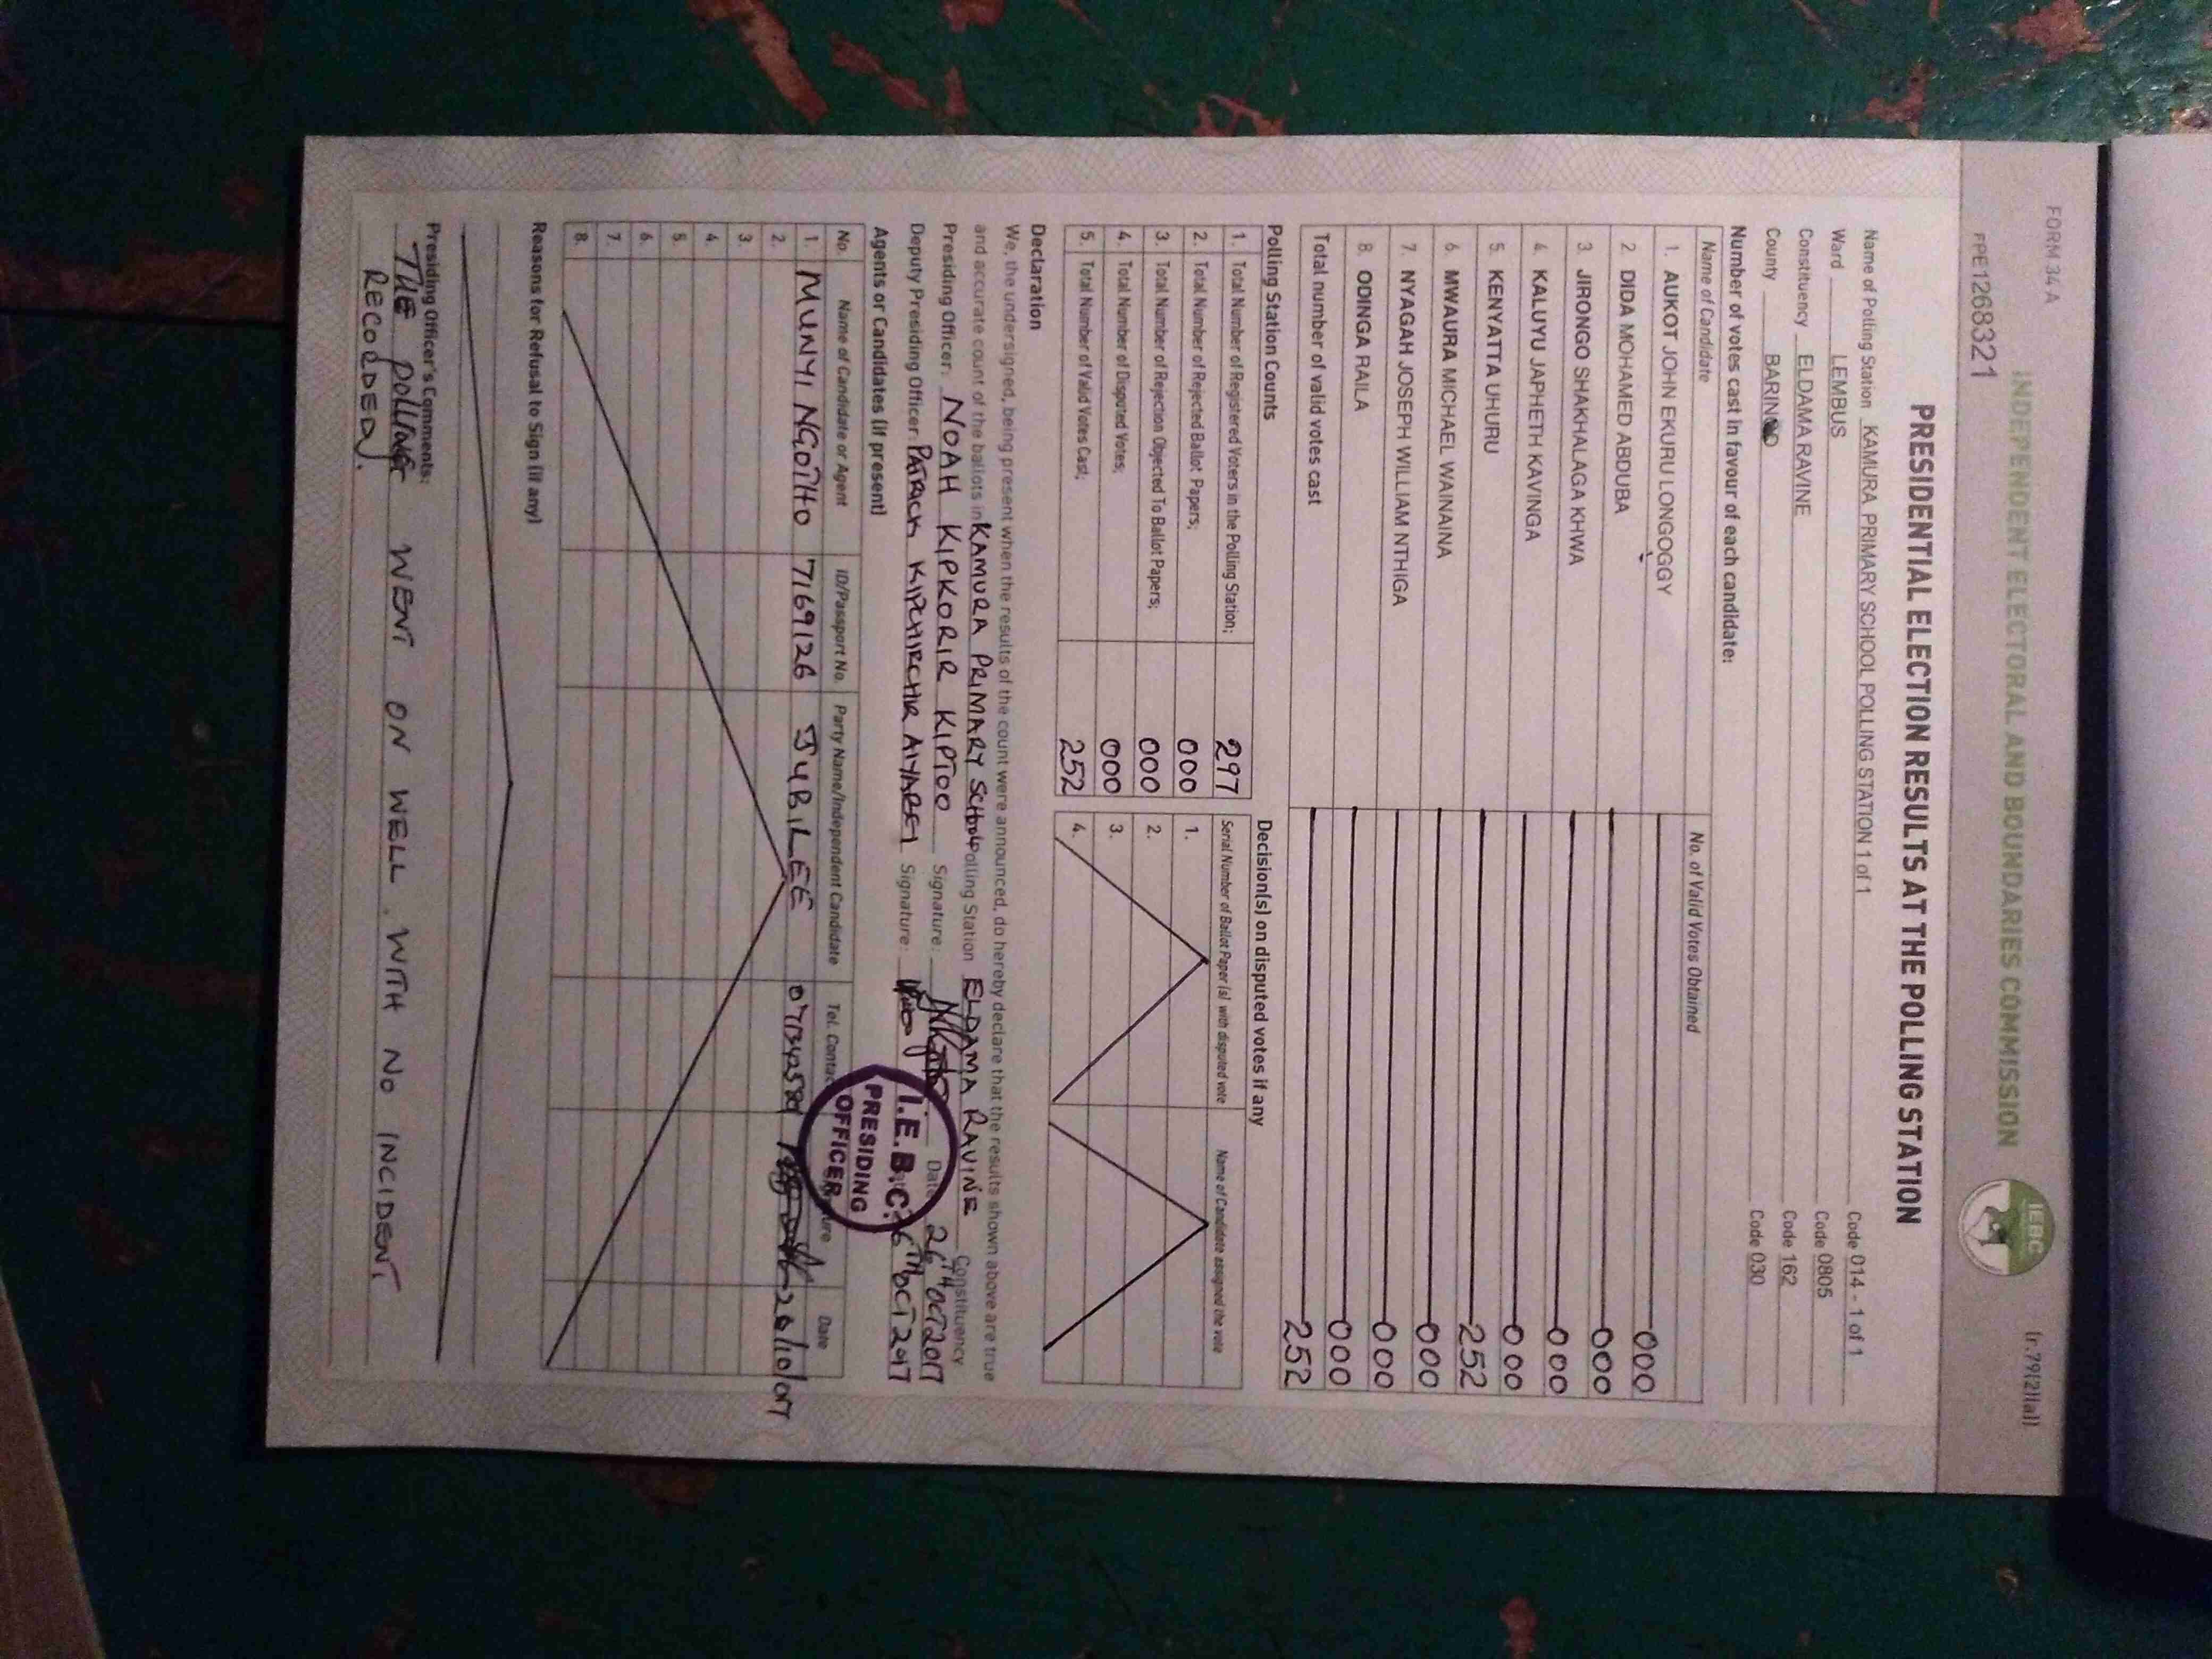 FORM 34 A
(r.79(2)(a))
INDEPENDENT ELECTORAL AND BOUNDARIES COMMISSION
IEBC
PPE1268321
PRESIDENTIAL ELECTION RESULTS AT THE POLLING STATION
Name of Polling Station KAMURA PRIMARY SCHOOL POLLING STATION 1 of 1 Code 014 - 1 of 1
Ward LEMBUS Code 0805
Constituency ELDAMA RAVINE Code 162
County BARINGO Code 030
Number of votes cast in favour of each candidate:
Name of Candidate No. of Valid Votes Obtained
1. AUKOT JOHN EKURU LONGOGGY 000
2 DIDA MOHAMED ABDUBA 000
3. JIRONGO SHAKHALAGA KHWA 000
4. KALUYU JAPHETH KAVINGA 000
5. KENYATTA UHURU 252
6 MWAURA MICHAEL WAINAINA 000
7. NYAGAH JOSEPH WILLIAM NTHIGA 000
8. ODINGA RAILA 000
Total number of valid votes cast 252
Polling Station Counts
1. Total Number of Registered Voters in the Polling Station; 297
2. Total Number of Rejected Ballot Papers; 000
3. Total Number of Rejection Objected To Ballot Papers; 000
4. Total Number of Disputed Votes; 000
5. Total Number of Valid Votes Cast; 252
Decision(s) on disputed votes if any
Serial Number of Ballot Paper (s) with disputed vote Name of Candidate assigned the vote
1.
2.
3.
4.
Declaration
We, the undersigned, being present when the results of the count were announced, do hereby declare that the results shown above are true
and accurate count of the ballots in KAMURA PRIMARY SCHOOL Polling Station ELDAMA RAVINE Constituency
Presiding Officer: NOAH KIPKORIR KIPTOO Signature: Date 26TH OCT 2017
Deputy Presiding Officer: PATRICK KIPCHIRCHIR AIYABEI Signature:
I.E.B.C.
PRESIDING
OFFICER
Agents or Candidates (if present)
No. Name of Candidate or Agent ID/Passport No. Party Name/Independent Candidate Tel. Contact Date
1. MUNYI NGOTHO 7169126 JUBILEE
2.
3
4.
5.
6.
7.
8.
Reasons for Refusal to Sign (if any)
Presiding Officer's Comments:
THE POLLING WENT ON WELL WITH NO INCIDENT
RECORDED.